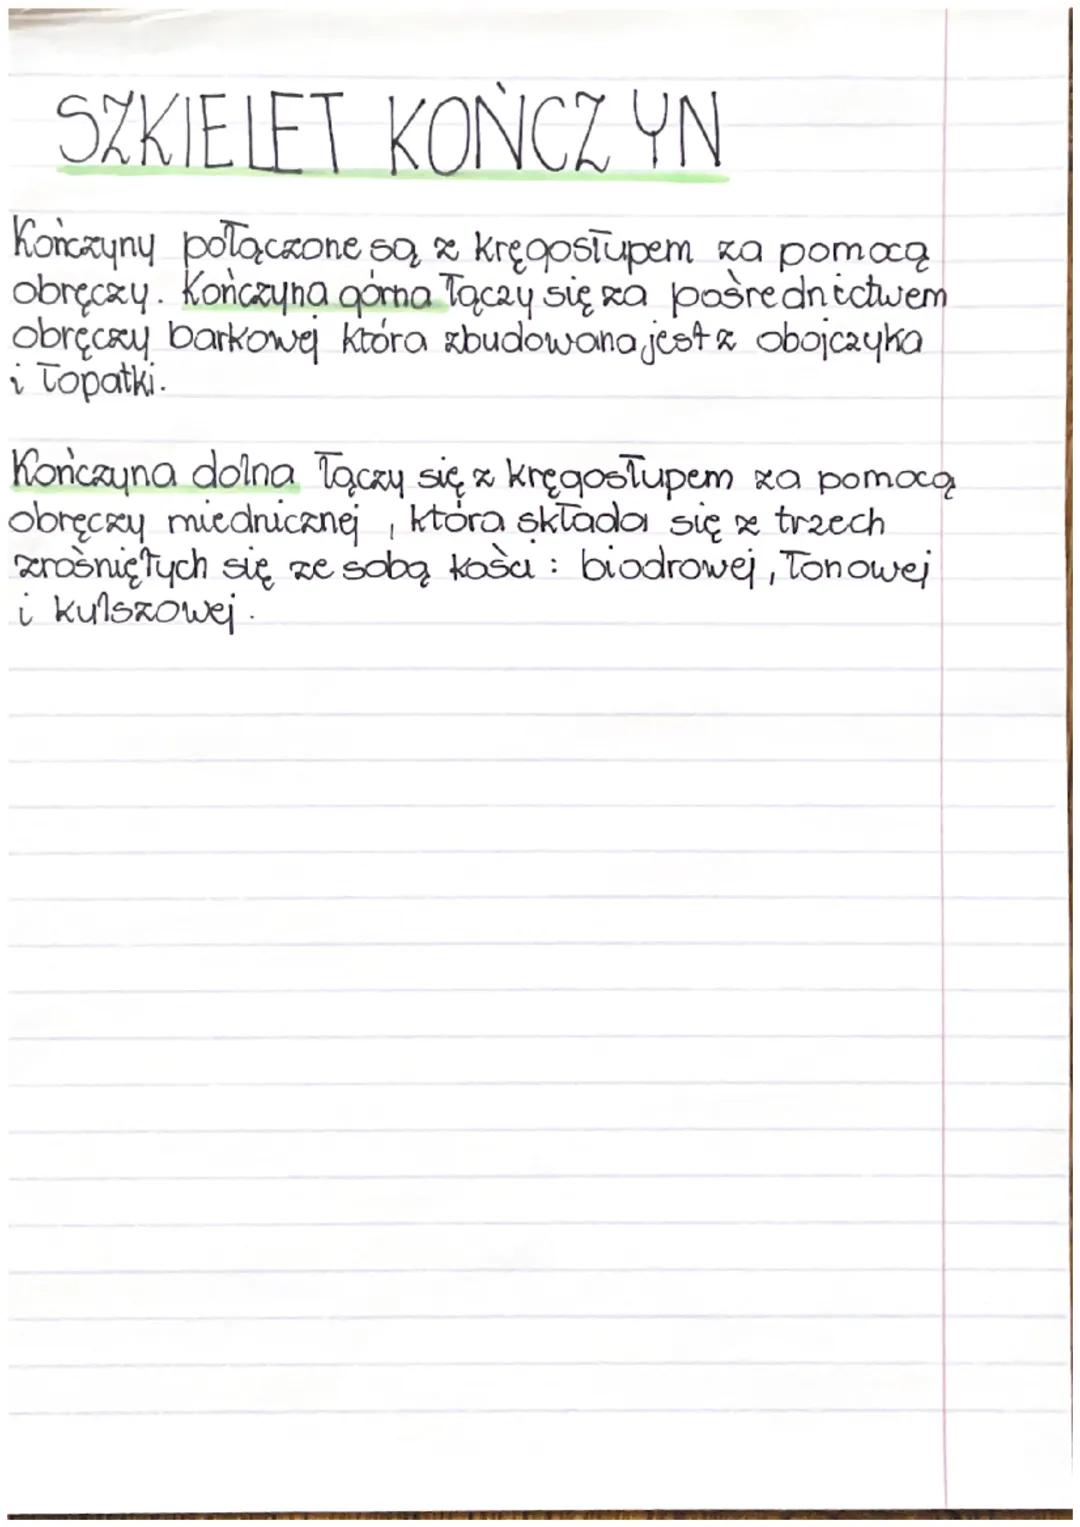 SZKIELET KOŃCZYN
Kończyny połączone są z kręgosłupem za pomocą
obręczy. Kończyna górna łączy się za pośrednictwem
obręczy barkowej która zbudowana jest z obojczyka
i łopatki.
Kończyna dolna łączy się z kręgosłupem za pomocą
obręczy miednicznej, która składa się z trzech
zrośniętych się ze sobą kości: biodrowej, łonowej
i kulszowej.